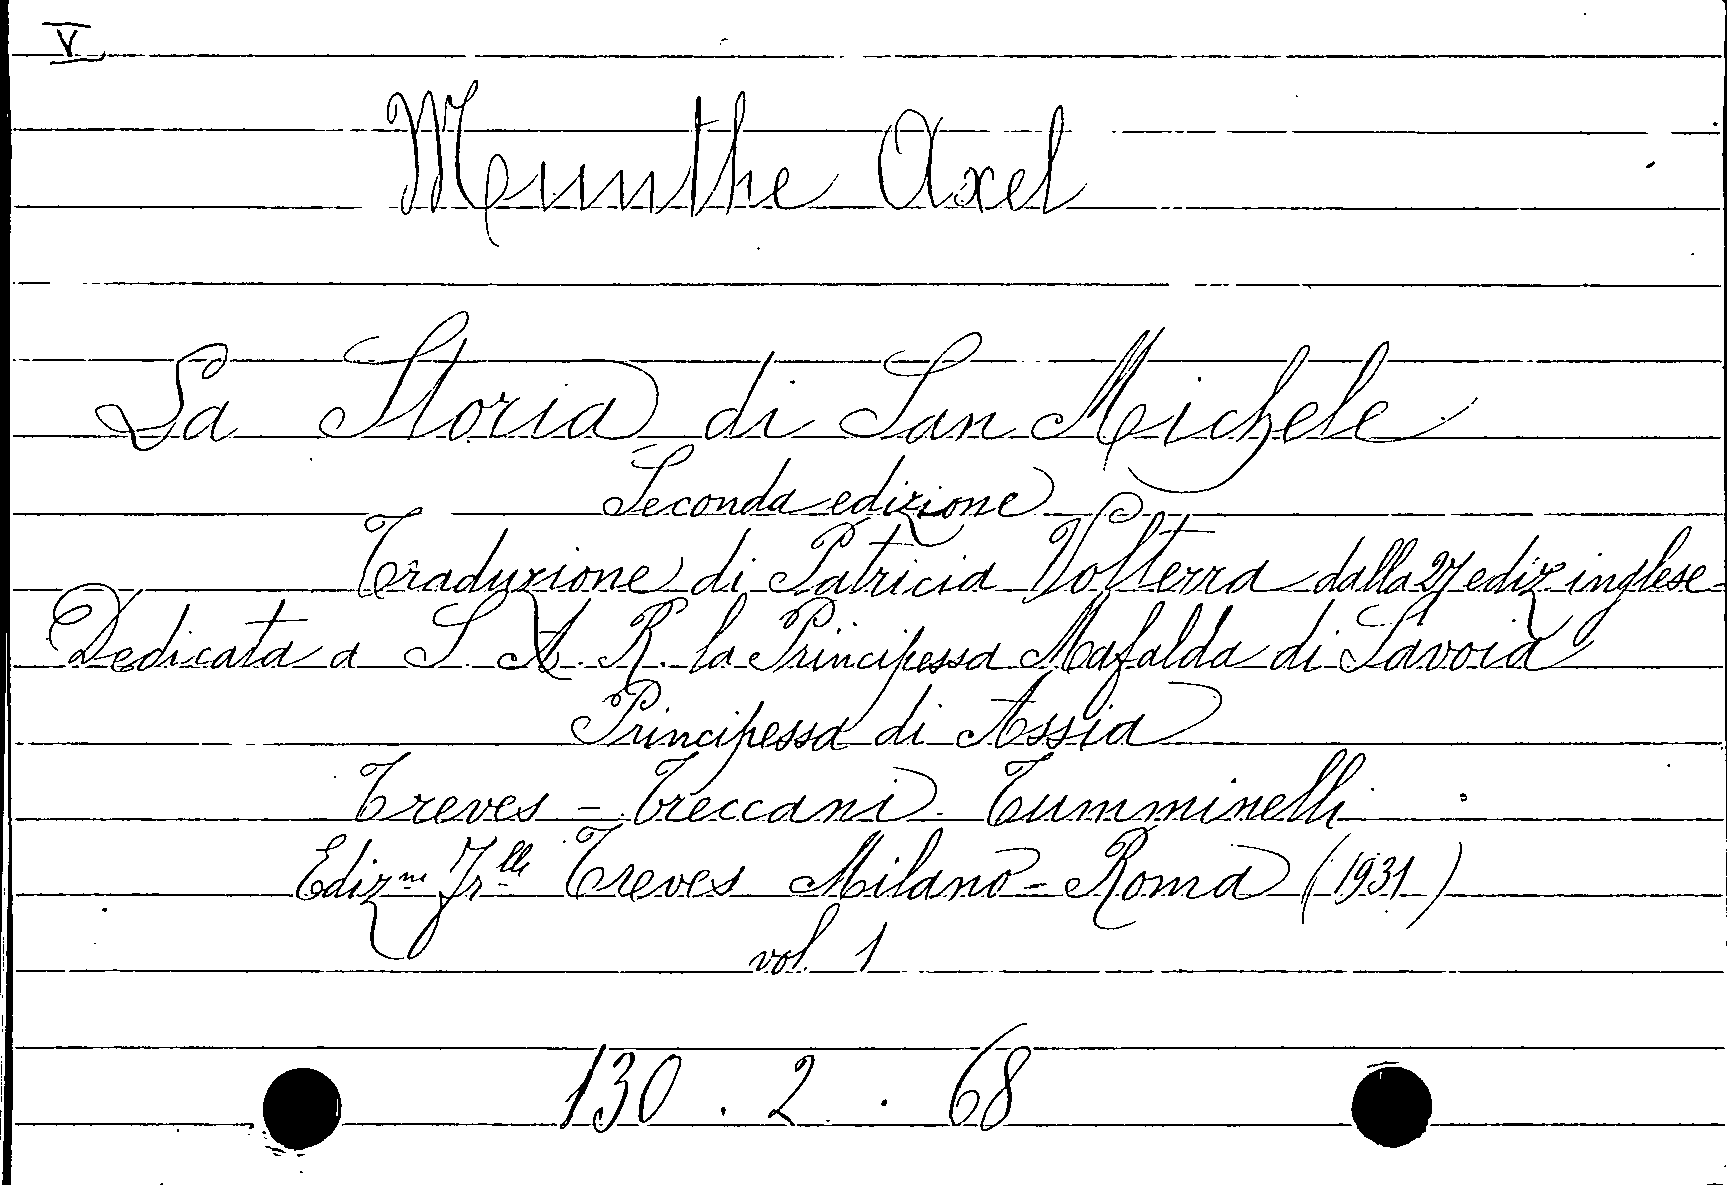 V
Munthe Axel
La Storia di San Michele
Seconda edizione
Traduzione di Patricia Volterra dalla 27 ediz inglese-
Dedicata a S. A. R. la Principessa Mafalda di Savoia
Principessa di Assia
Treves - Treccani Tumminelli
Ediz.ni Fr.lli Treves Milano - Roma (1931)
vol. 1
130 . 2 . 68